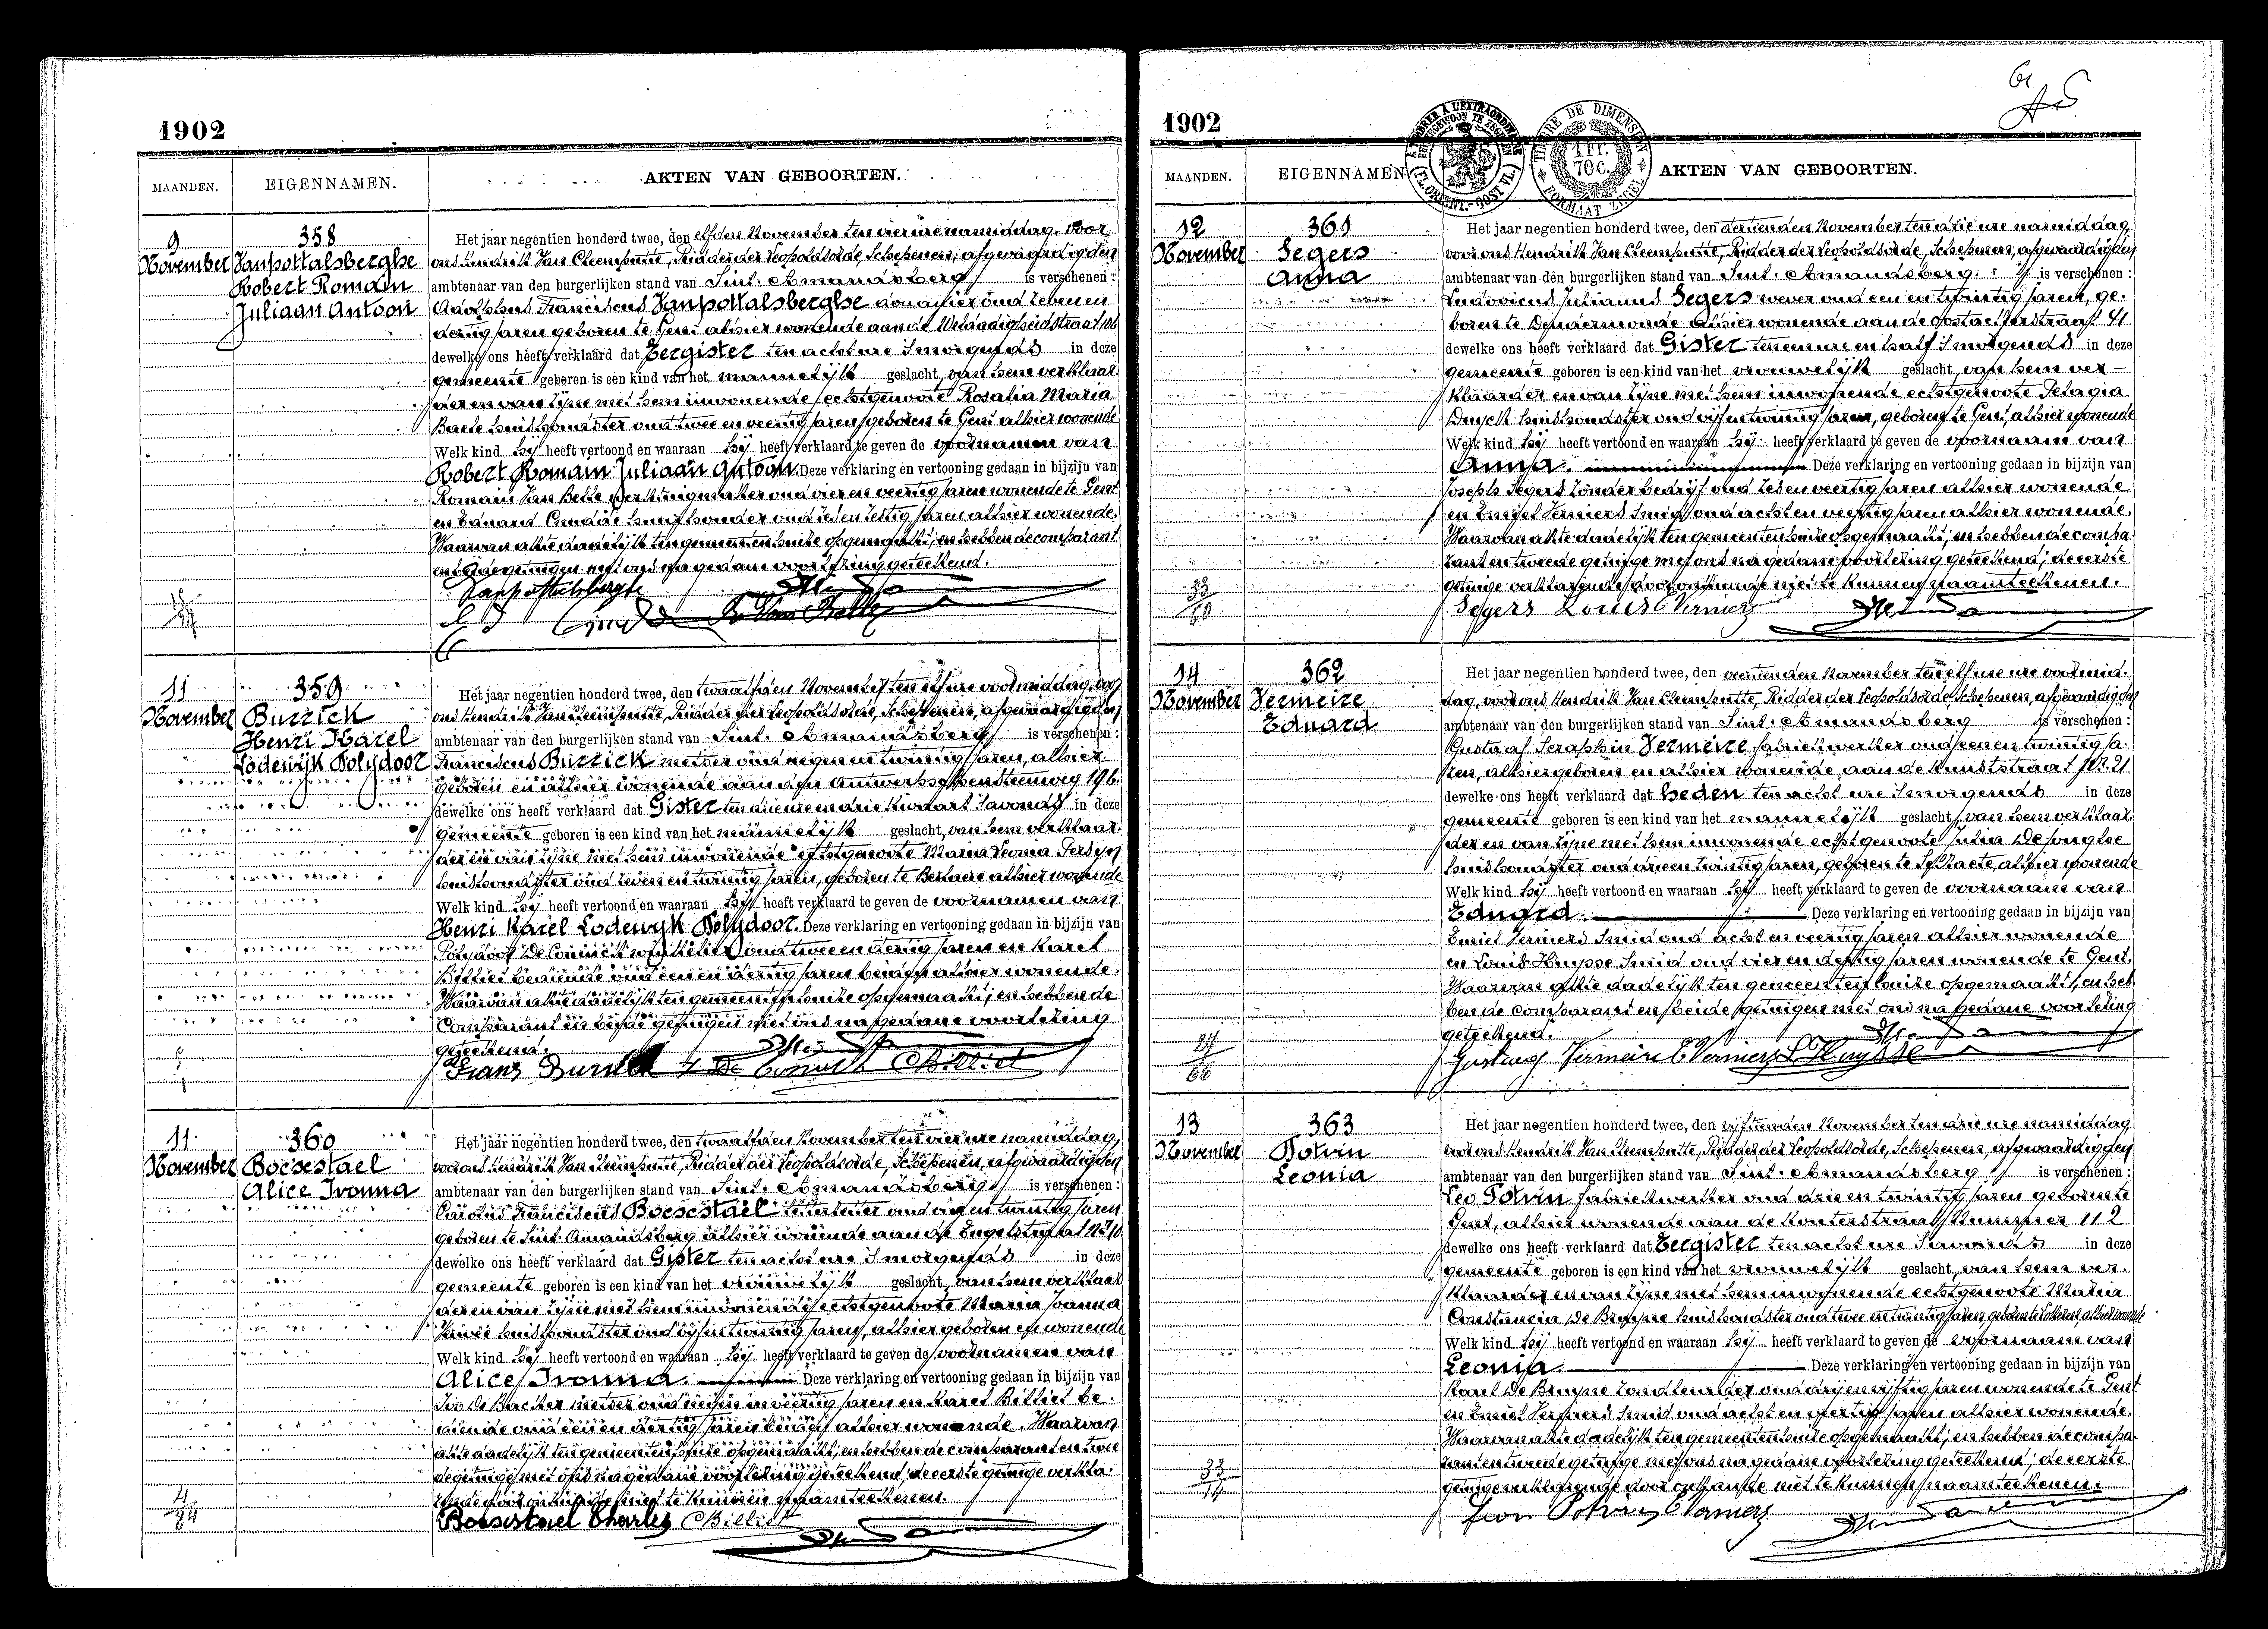 1902
MAANDEN. EIGENNAMEN. AKTEN VAN GEBOORTEN.
9 November
358
Vanpottalsberghe
Robert Romain
Juliaan Antoon
Het jaar negentien honderd twee, den elfden November ten vier ure namiddag, voor
ons Hendrik Van Cleemputte, Ridder der Leopoldsorde, Schepenen, afgevaardigden
ambtenaar van den burgerlijken stand van Sint-Amandsberg is verschenen:
Adolphus Franciscus Vanpottalsberghe oud zeven en
dertig jaren geboren te Gent alhier wonende aan de
dewelke ons heeft verklaard dat Eergister ten acht ure 's morgends in deze
gemeente geboren is een kind van het mannelijk geslacht, van hem verklaar-
der en van zijne met hem inwonende echtgenoote Rosalia Maria
huishoudster oud twee en veertig jaren geboren te Gent alhier wonende
Welk kind hij heeft vertoond en waaraan hij heeft verklaard te geven de voornamen van
Robert Romain Juliaan Antoon. Deze verklaring en vertooning gedaan in bijzijn van
Romain Van Belle oud vier en veertig jaren wonende te Gent
en Eduard oud zes en zestig jaren alhier wonende.
Waarvan akte dadelijk ten gemeentenhuize opgemaakt, en hebben de comparant
en beide getuigen met ons na gedane voorlezing geteekend.
11 November
359
Burrick
Henri Karel
Lodewijk Polydoor
Het jaar negentien honderd twee, den twaalfden November ten elf ure voormiddag, voor
ons Hendrik Van Cleemputte, Ridder der Leopoldsorde, Schepenen, afgevaardigden
ambtenaar van den burgerlijken stand van Sint-Amandsberg is verschenen:
Franciscus Burrick metser oud negen en twintig jaren, alhier
geboren en alhier wonende aan den Antwerpschensteenweg 196
dewelke ons heeft verklaard dat Gister ten drie ure en drie kwaart 's avonds in deze
gemeente geboren is een kind van het mannelijk geslacht, van hem verklaar-
der en van zijne met hem inwonende echtgenoote Maria Leonia Persyn
huishoudster oud zeven en twintig jaren, geboren te alhier wonende
Welk kind hij heeft vertoond en waaraan hij heeft verklaard te geven de voornamen van
Henri Karel Lodewyk Polydoor. Deze verklaring en vertooning gedaan in bijzijn van
Polydoor De Coninck oud twee en dertig jaren en Karel
Billiet bediende oud een en dertig jaren beiden alhier wonende.
Waarvan akte dadelijk ten gemeentenhuize opgemaakt, en hebben de
comparant en beide getuigen met ons na gedane voorlezing
geteekend.
11 November
360
Boesestael
Alice Ivonna
Het jaar negentien honderd twee, den twaalfden November ten vier ure namiddag,
voor ons Hendrik Van Cleemputte, Ridder der Leopoldsorde, Schepenen, afgevaardigden
ambtenaar van den burgerlijken stand van Sint-Amandsberg is verschenen:
Carolus Franciscus Boesestael oud twintig jaren
geboren te Sint-Amandsberg alhier wonende aan de Engelstraat No 10
dewelke ons heeft verklaard dat Gister ten acht ure 's morgends in deze
gemeente geboren is een kind van het vrouwelijk geslacht, van hem verklaar-
der en van zijne met hem inwonende echtgenoote Maria Joanna
huishoudster oud vijf en twintig jaren, alhier geboren en wonende
Welk kind hij heeft vertoond en waaraan hij heeft verklaard te geven de voornamen van
Alice Ivonna. Deze verklaring en vertooning gedaan in bijzijn van
De Backer metser oud negen en veertig jaren en Karel Billiet be-
diende oud een en dertig jaren beiden alhier wonende. Waarvan
akte dadelijk ten gemeentenhuize opgemaakt, en hebben de comparant en twee-
de getuige met ons na gedane voorlezing geteekend; de eerste getuige verkla-
rende door onkunde niet te kunnen naamteekenen.
Boesestael Charles CBilliet
1902
MAANDEN. EIGENNAMEN AKTEN VAN GEBOORTEN.
TIMBRE DE DIMENSION
1 Fr. 70 C.
FORMAAT ZEGEL
12 November
361
Segers
Anna
Het jaar negentien honderd twee, den dertienden November ten drie ure namiddag
voor ons Hendrik Van Cleemputte, Ridder der Leopoldsorde, Schepenen, afgevaardigden
ambtenaar van den burgerlijken stand van Sint-Amandsberg is verschenen:
Ludovicus Julianus Segers wever oud een en twintig jaren, ge-
boren te Dendermonde alhier wonende aan de Oostackerstraat 41
dewelke ons heeft verklaard dat Gister ten een ure en half 's morgends in deze
gemeente geboren is een kind van het vrouwelijk geslacht, van hem ver-
klaarder en van zijne met hem inwonende echtgenoote Pelagia
huishoudster oud vijf en twintig jaren, geboren te Gent, alhier wonende
Welk kind hij heeft vertoond en waaraan hij heeft verklaard te geven de voornaam van
Anna. Deze verklaring en vertooning gedaan in bijzijn van
Joseph Segers zonder bedrijf oud zes en veertig jaren alhier wonende
en Emiel Verniers Smid oud acht en veertig jaren alhier wonende.
Waarvan akte dadelijk ten gemeentenhuize opgemaakt, en hebben de compa-
rant en tweede getuige met ons na gedane voorlezing geteekend; de eerste
getuige verklarende door onkunde niet te kunnen naamteekenen.
33/60 Segers Louis E Verniers
14 November
362
Vermeire
Eduard
Het jaar negentien honderd twee, den veertienden November ten elf ure ure voormid-
dag, voor ons Hendrik Van Cleemputte, Ridder der Leopoldsorde, Schepenen, afgevaardigden
ambtenaar van den burgerlijken stand van Sint-Amandsberg is verschenen:
Gustaaf Seraphin Vermeire fabriekwerker oud een en twintig ja-
ren, alhier geboren en alhier wonende aan de Kunststraat No 21
dewelke ons heeft verklaard dat heden ten acht ure 's morgends in deze
gemeente geboren is een kind van het mannelijk geslacht, van hem verklaar-
der en van zijne met hem inwonende echtgenoote Julia De Jonghe
huishoudster oud drie en twintig jaren, geboren te alhier wonende
Welk kind hij heeft vertoond en waaraan hij heeft verklaard te geven de voornaam van
Eduard. Deze verklaring en vertooning gedaan in bijzijn van
Emiel Verniers Smid oud acht en veertig jaren alhier wonende
en Louis Huysse Smid oud vier en dertig jaren wonende te Gent.
Waarvan akte dadelijk ten gemeentenhuize opgemaakt, en heb-
ben de comparant en beide getuigen met ons na gedane voorlezing
geteekend.
27/66 Gustaaf Vermeire E Verniers L Huysse
13 November
363
Potvin
Leonia
Het jaar negentien honderd twee, den vijftienden November ten drie ure namiddag
voor ons Hendrik Van Cleemputte, Ridder der Leopoldsorde, Schepenen, afgevaardigden
ambtenaar van den burgerlijken stand van Sint-Amandsberg is verschenen:
Leo Potvin fabriekwerker oud drie en twintig jaren geboren te
Gent, alhier wonende aan de Kouterstraat Nummer 112
dewelke ons heeft verklaard dat Eergister ten acht ure 's avonds in deze
gemeente geboren is een kind van het vrouwelijk geslacht, van hem ver-
klaarder en van zijne met hem inwonende echtgenoote Maria
Constancia De Bruyne huishoudster oud twee en twintig jaren, geboren te alhier wonende
Welk kind hij heeft vertoond en waaraan hij heeft verklaard te geven de voornaam van
Leonia Deze verklaring en vertooning gedaan in bijzijn van
Karel De Bruyne oud drij en vijftig jaren wonende te Gent
en Emiel Verniers Smid oud acht en veertig jaren alhier wonende.
Waarvan akte dadelijk ten gemeentenhuize opgemaakt, en hebben de compa-
rant en tweede getuige met ons na gedane voorlezing geteekend; de eerste
getuige verklarende door onkunde niet te kunnen naamteekenen.
33/14 Leon Potvin E Verniers